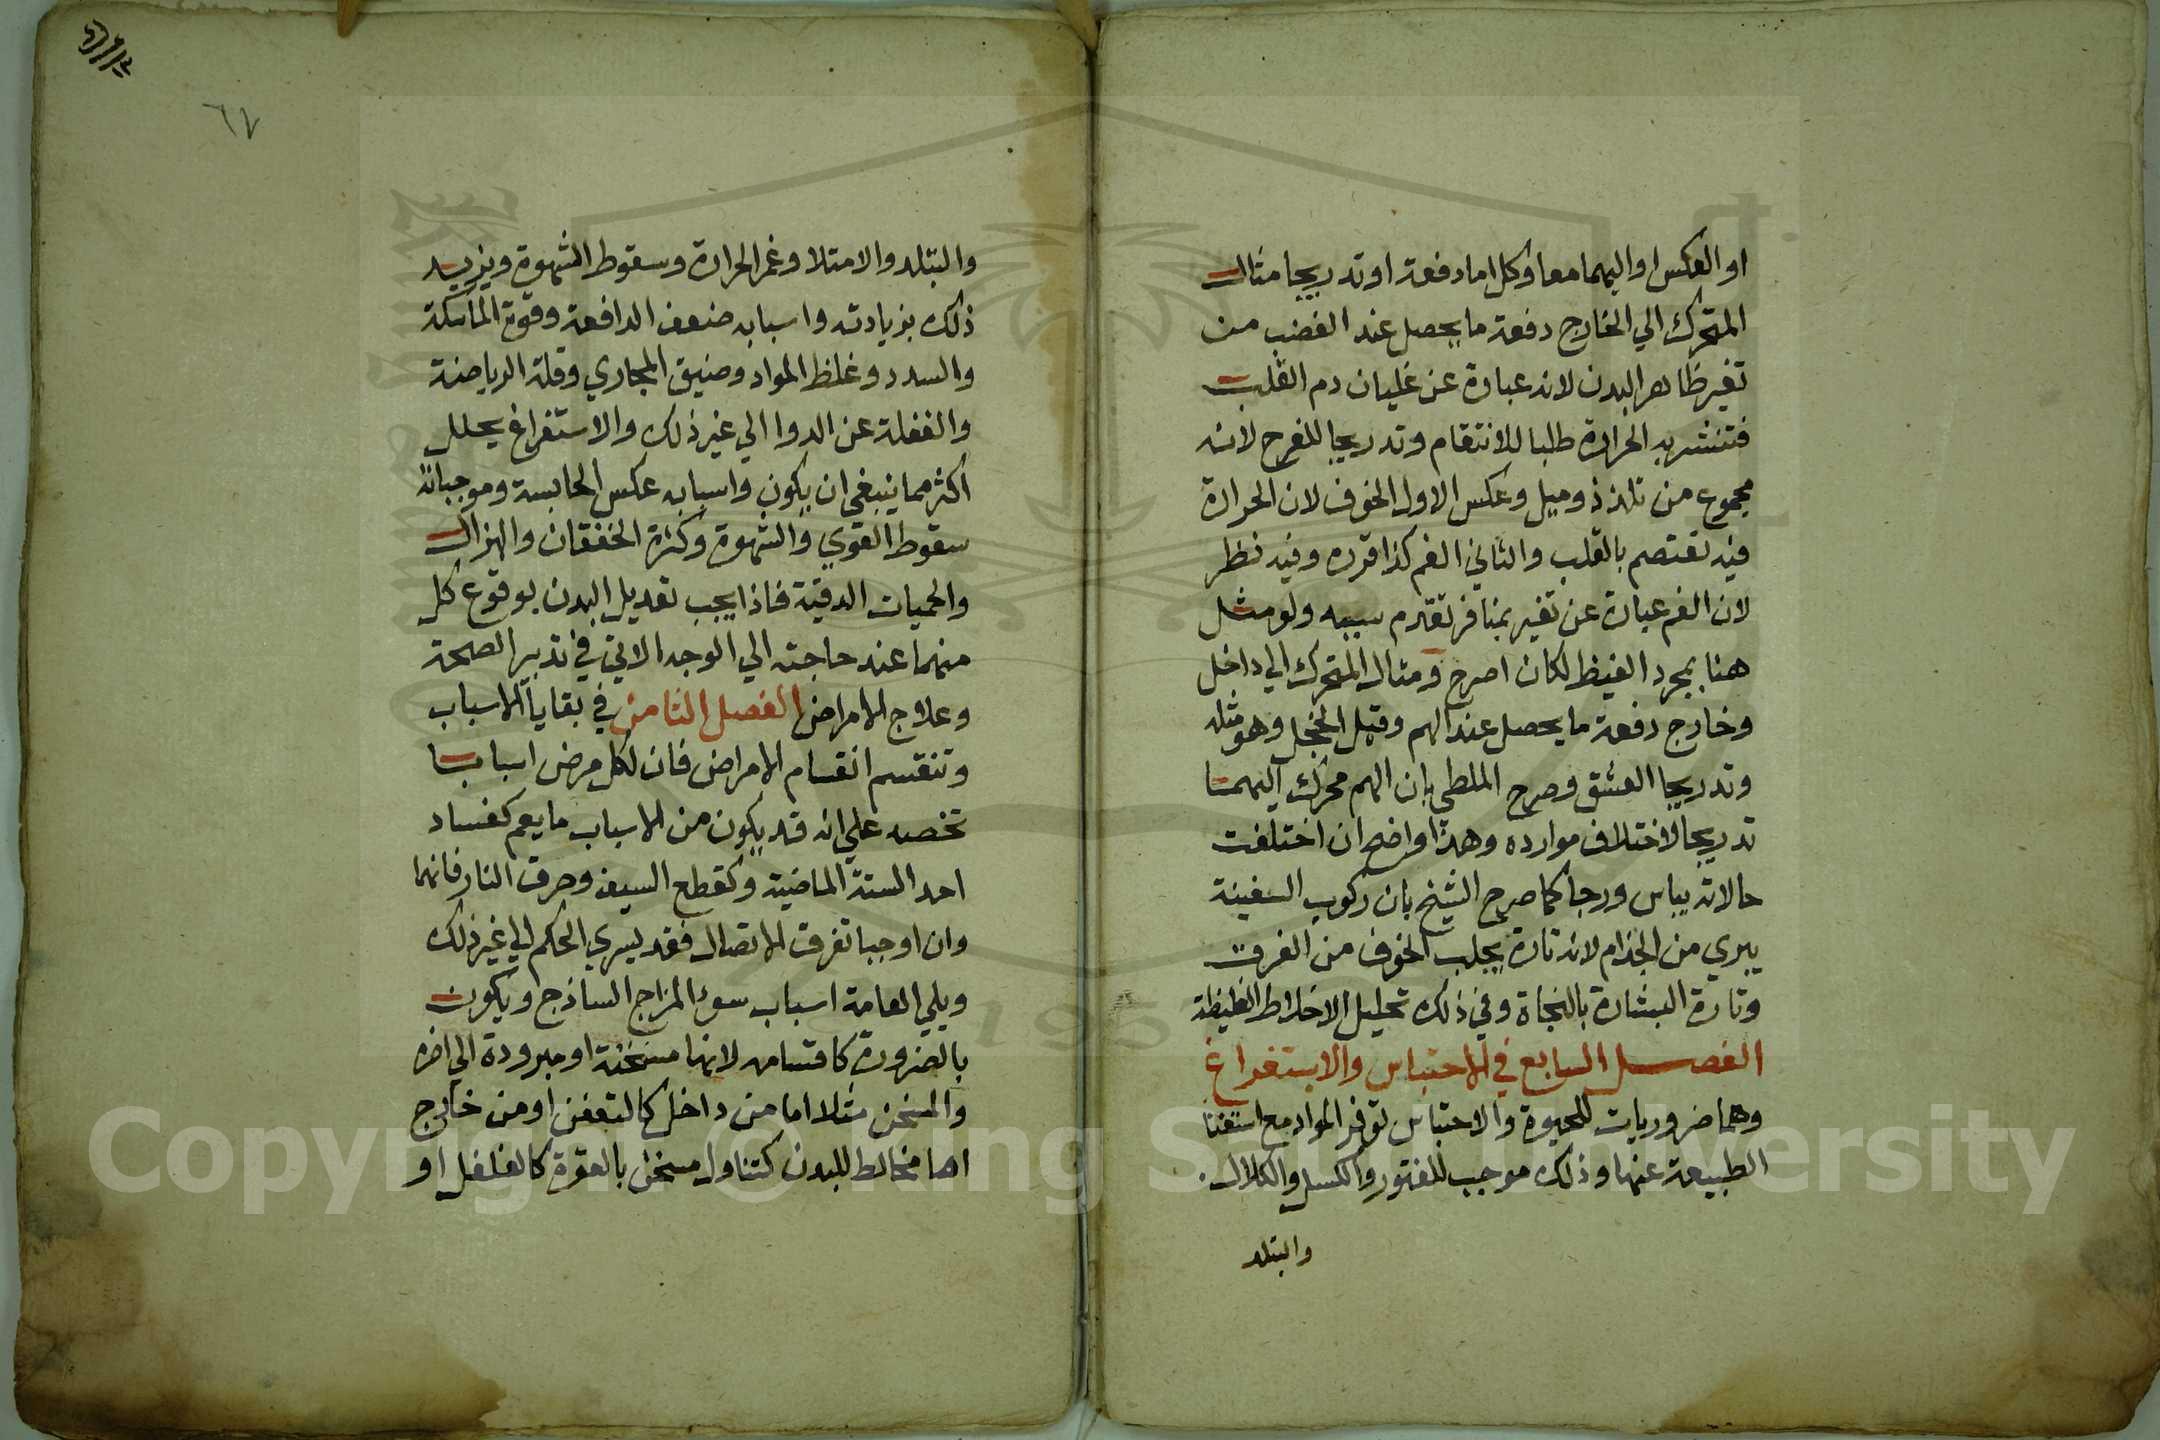 او العكس او اليهما معا وكل اما دفعة او تدريجا مثال
المتحرك الي الخارج دفعة ما يحصل عند الغضب من
تغير ظاهر البدن لانه عبارة عن غليان دم القلب
فتنشر به الحرارة طلبا للانتقام وتدريجا للفرح لانه
مجموع من تلذذ وميل وعكس الاول الخوف لان الحرارة
فيه تعتصم بالقلب والثاني الغم كذا قرره وفيه نظر
لان الغم عبارة عن تغير بمنافر تقدم سببه ولو مثل
هنا بمجرد الغيظ لكان اصرح ومثال المتحرك الي داخل
وخارج دفعة ما يحصل عند الهم وقيل الخجل وهو مثله
وتدريجا العشق وصرح الملطي بان الهم محرك اليهما
تدريجا لاختلاف موارده وهذا واضح ان اختلفت
حالاته بياس ورجا كما صرح الشيخ بان ركوب السفينة
يبري من الجذام لانه تارة يجلب الخوف من الغرق
وتارة البشارة بالنجاة وفي ذلك تحليل الاخلاط الغليظة
الفصل السابع في الاحتباس والاستفراغ
وهما ضروريات للحيوة والاحتباس توفر المواد مع استغنا
الطبيعة عنها وذلك موجب للفتور والكسل والكلال
والبتلد
٦٧
والبتلد والامتلا وغمر الحرارة وسقوط الشهوة ويزيد
ذلك بزيادته واسبابه ضعف الدافعة وقوة الماسكة
والسدد وغلظ المواد وضيق المجاري وقلة الرياضة
والغفلة عن الدوا الي غير ذلك والاستفراغ يحلل
اكثر مما ينبغي ان يكون واسبابه عكس الحابسة وموجباته
سقوط القوي والشهوة وكثرة الخفقان والهزال
والحميات الدقية فاذا يجب تعديل البدن بوقوع كل
منهما عند حاجته الي الوجه الاتي في تدبير الصحة
وعلاج الامراض الفصل الثامن في بقايا الاسباب
وتنقسم انقسام الامراض فان لكل مرض اسبابا
تخصه علي انه قد يكون من الاسباب ما يعم كفساد
احد الستة الماضية وكقطع السيف وحرق النار فانهما
وان اوجبا تفرق الاتصال فقد يسري الحكم الي غير ذلك
ويلي العامة اسباب سوء المزاج الساذج ويكون
بالضرورة كاقسامه لانها مسخنة او مبرودة الي اخره
والمسخن مثلا اما من داخل كالتعفن او من خارج
اما مخالط للبدن كتناول مسخن بالقوة كالفلفل او
Copyright © King Saud University